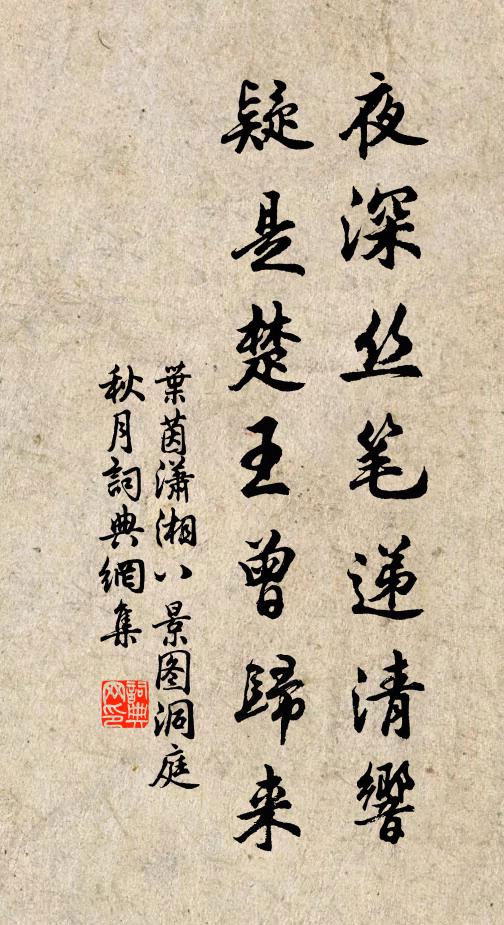 夜深丝笔递清響
疑是楚王曾歸来
葉茵瀟湘八景图洞庭
秋月詞典網集
詞典网印